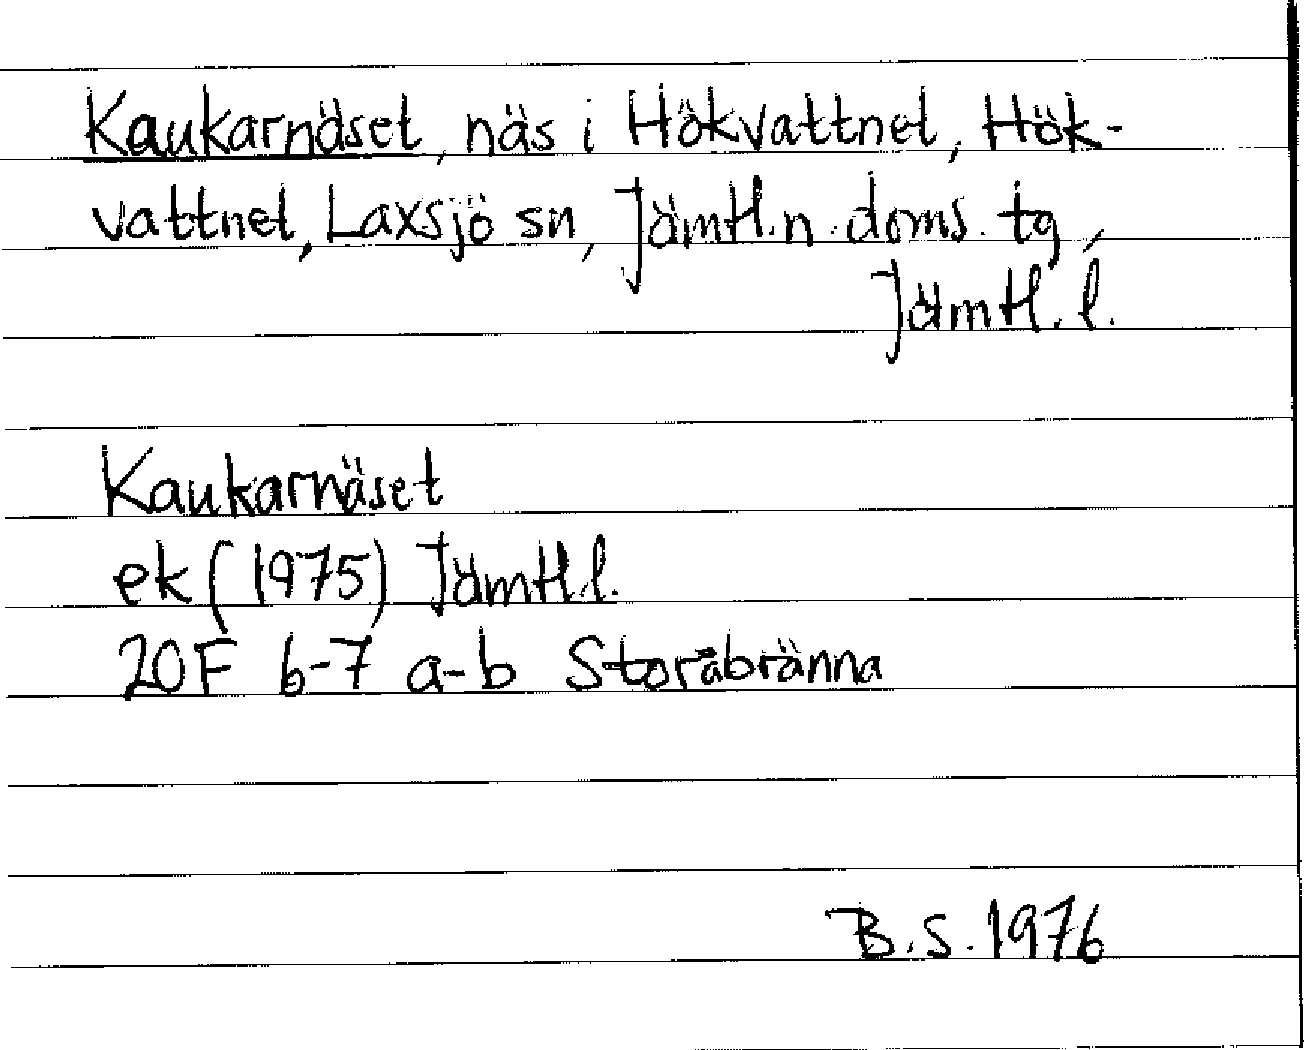 Kaukarnäset, näs i Hökvattnet, Hök-
vattnet, Laxsjö sn, Jämtl.n. doms. tg,
Jämtl. l.
Kaukarnäset
ek (1975) Jämtl.l.
20F 6-7 a-b Storåbränna
B.S. 1976